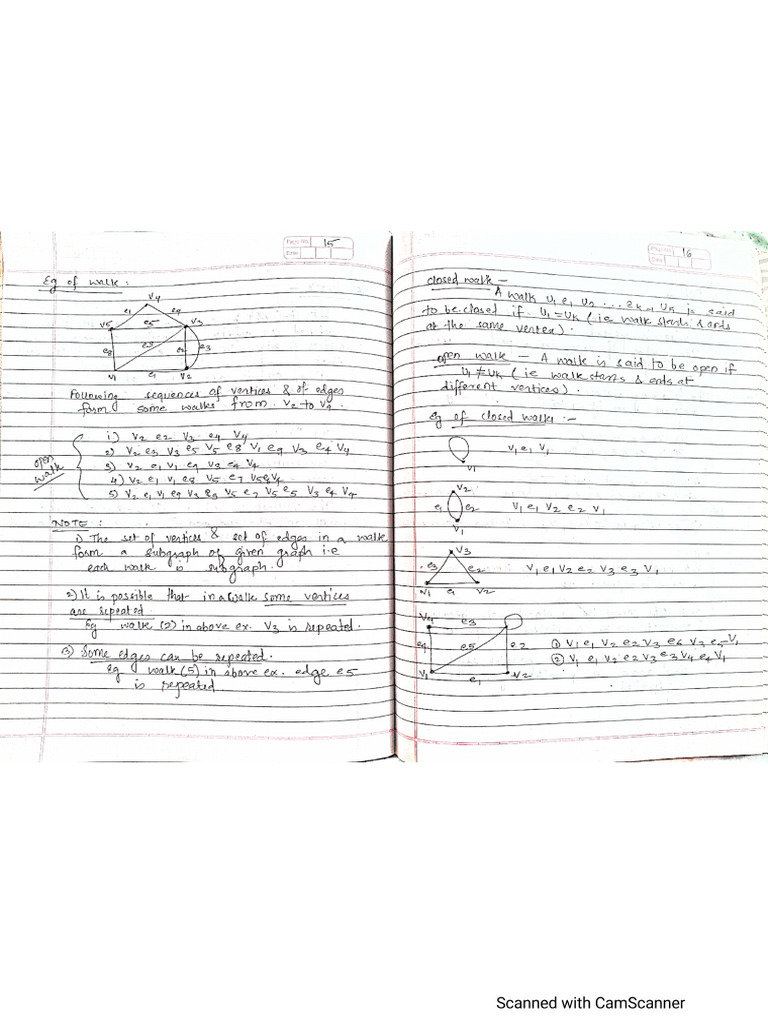 Page No. 15
Date
Eg of walk :
V4
e7 e4
V5 e5 V3
e8 e9 e2 e3
V1 e1 V2
Following sequences of vertices & of edges
form some walks from V2 to V4.
open walk
1) V2 e2 V3 e4 V4
2) V2 e3 V3 e5 V5 e8 V1 e9 V3 e4 V4
3) V2 e1 V1 e9 V3 e4 V4
4) V2 e1 V1 e8 V5 e7
5) V2 e1 V1 e9 V3 e5 V5 e7 V5 e5 V3 e4 V4
NOTE :
1) The set of vertices & set of edges in a walk
form a subgraph of given graph i.e
each walk is subgraph.
2) It is possible that in a walk some vertices
are repeated
Eg walk (2) in above ex. V3 is repeated.
3) Some edges can be repeated.
Eg walk (5) in above ex. edge e5
is repeated
Page No. 16
Date
closed walk –
A walk U1 e1 U2 ... ek-1 Uk is said
to be closed if U1 = Uk ( ie walk starts & ends
at the same vertex) .
open walk – A walk is said to be open if
U1 ≠ Uk ( ie walk starts & ends at
different vertices) .
eg of closed walk :-
V1 V1 e1 V1
V2
e1 e2 V1 e1 V2 e2 V1
V1
V3
e3 e2 V1 e1 V2 e2 V3 e3 V1
V1 e1 V2
V4 e3
e4 e5 e2 ① V1 e1 V2 e2 V3 e6 V3 e5 V1
② V1 e1 V2 e2 V3 e3 V4 e4 V1
V1 e1 V2
Scanned with CamScanner